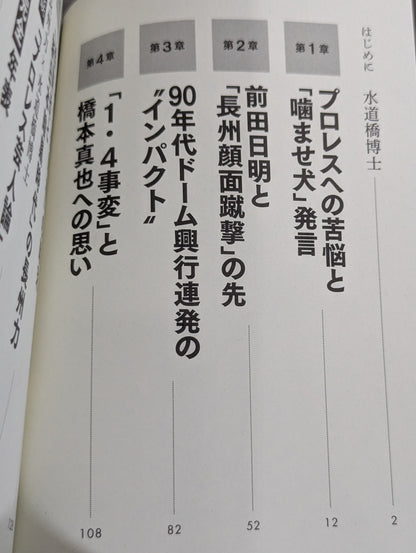 はじめに 水道橋博士
2
第1章
プロレスへの苦悩と
「噛ませ犬」発言
12
第2章
前田日明と
「長州顔面蹴撃」の先
52
第3章
90年代ドーム興行連発の
〝インパクト〟
82
第4章
「1・4事変」と
橋本真也への思い
108